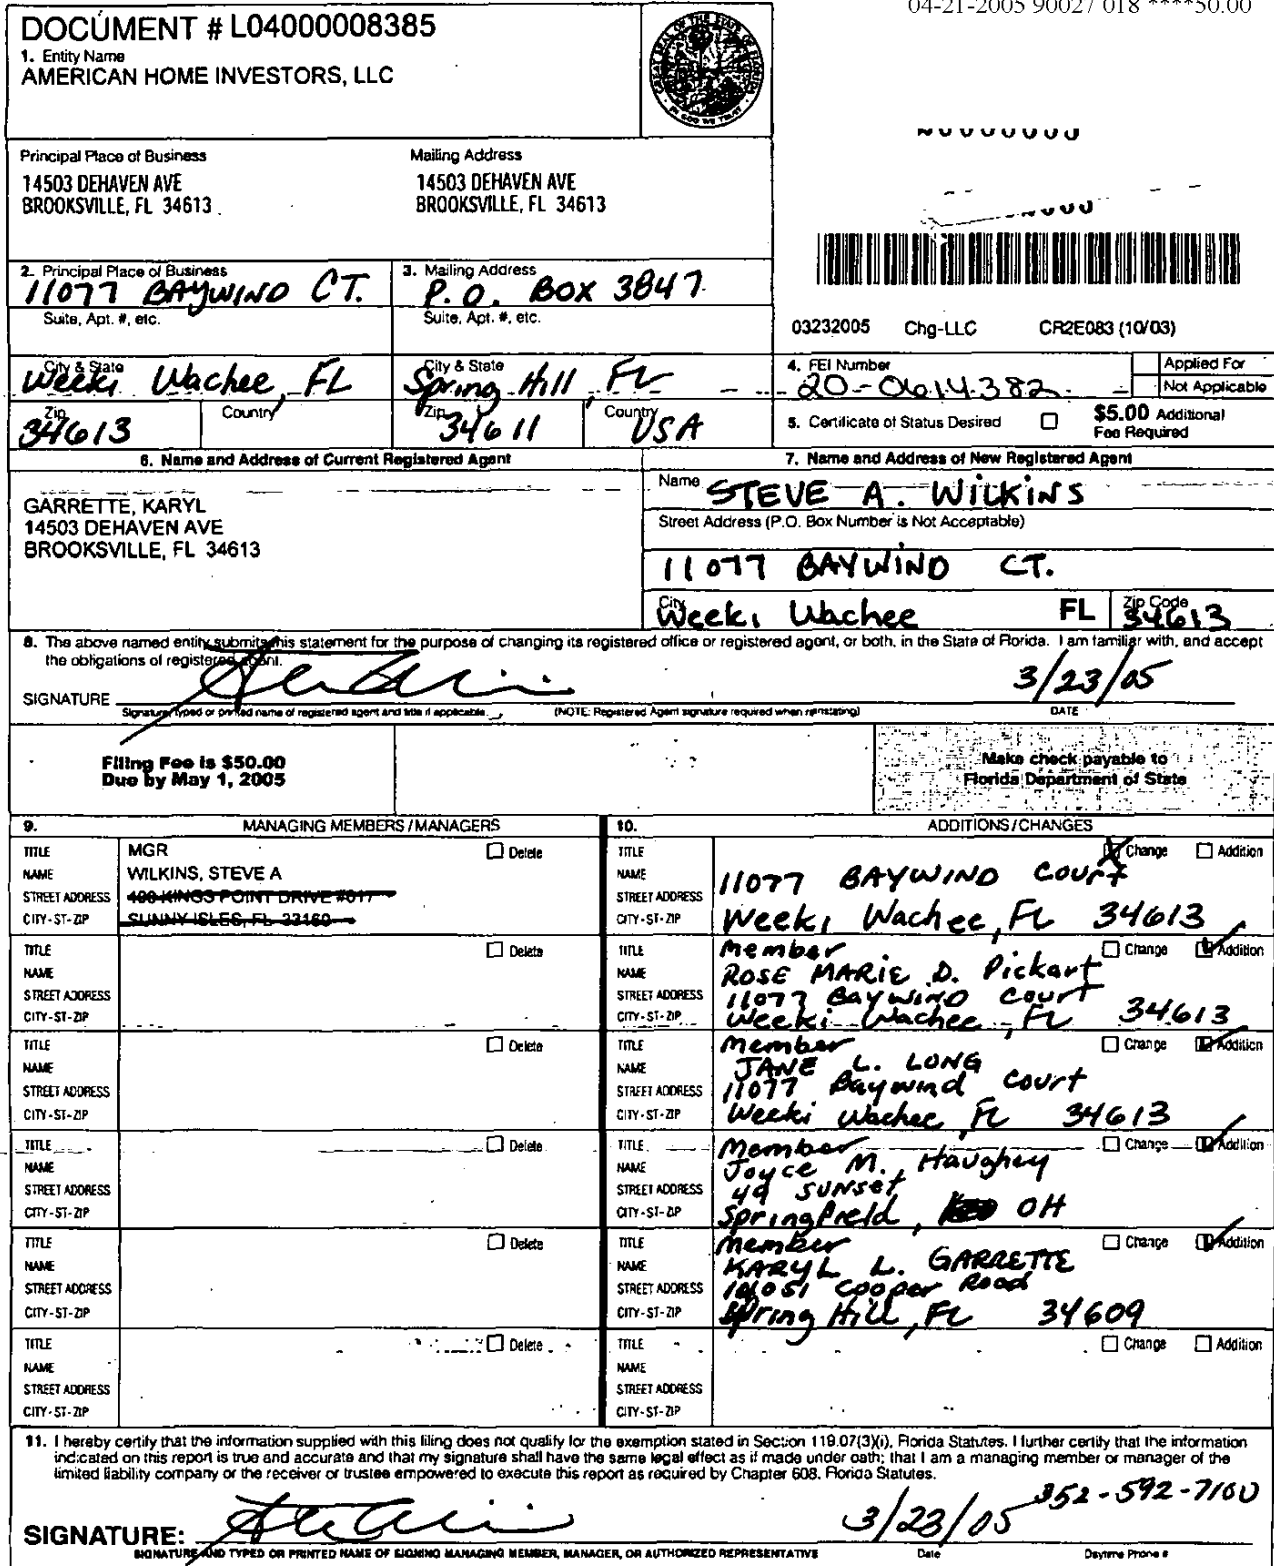 04-21-2005 90027 018 ****50.00
DOCUMENT # L04000008385
1. Entity Name
AMERICAN HOME INVESTORS, LLC
GREAT SEAL OF THE STATE OF FLORIDA
IN GOD WE TRUST
Principal Place of Business
14503 DEHAVEN AVE
BROOKSVILLE, FL 34613
Mailing Address
14503 DEHAVEN AVE
BROOKSVILLE, FL 34613
2. Principal Place of Business
11077 BAYWIND CT.
Suite, Apt. #, etc.
City & State
Weeki Wachee, FL
Zip
34613
Country
3. Mailing Address
P.O. BOX 3847
Suite, Apt. #, etc.
City & State
Spring Hill, FL
Zip
34611
Country
USA
03232005 Chg-LLC CR2E083 (10/03)
4. FEI Number
20-0614382
Applied For
Not Applicable
5. Certificate of Status Desired
$5.00 Additional
Fee Required
6. Name and Address of Current Registered Agent
GARRETTE, KARYL
14503 DEHAVEN AVE
BROOKSVILLE, FL 34613
7. Name and Address of New Registered Agent
Name STEVE A. WILKINS
Street Address (P.O. Box Number is Not Acceptable)
11077 BAYWIND CT.
City
Weeki Wachee FL
Zip Code
34613
8. The above named entity submits this statement for the purpose of changing its registered office or registered agent, or both, in the State of Florida. I am familiar with, and accept
the obligations of registered agent.
SIGNATURE
3/23/05
Signature, typed or printed name of registered agent and title if applicable.
(NOTE: Registered Agent signature required when reinstating)
DATE
Filing Fee is $50.00
Due by May 1, 2005
Make check payable to
Florida Department of State
9. MANAGING MEMBERS/MANAGERS
10. ADDITIONS/CHANGES
TITLE MGR Delete
NAME WILKINS, STEVE A
STREET ADDRESS 400 KINGS POINT DRIVE #617
CITY-ST-ZIP SUNNY ISLES, FL 33160
TITLE Change Addition
NAME
STREET ADDRESS 11077 BAYWIND Court
CITY-ST-ZIP Weeki Wachee, FL 34613
TITLE Delete
NAME
STREET ADDRESS
CITY-ST-ZIP
TITLE Member Change Addition
NAME ROSE MARIE D. Pickart
STREET ADDRESS 11077 BayWIND Court
CITY-ST-ZIP Weeki Wachee, FL 34613
TITLE Delete
NAME
STREET ADDRESS
CITY-ST-ZIP
TITLE Member Change Addition
NAME JANE L. LONG
STREET ADDRESS 11077 Baywind Court
CITY-ST-ZIP Weeki Wachee, FL 34613
TITLE Delete
NAME
STREET ADDRESS
CITY-ST-ZIP
TITLE Member Change Addition
NAME Joyce M. Haughey
STREET ADDRESS 49 SUNSet
CITY-ST-ZIP Springfield, OH
TITLE Delete
NAME
STREET ADDRESS
CITY-ST-ZIP
TITLE Member Change Addition
NAME KARYL L. GARRETTE
STREET ADDRESS 14051 Cooper Road
CITY-ST-ZIP Spring Hill, FL 34609
TITLE Delete
NAME
STREET ADDRESS
CITY-ST-ZIP
TITLE Change Addition
NAME
STREET ADDRESS
CITY-ST-ZIP
11. I hereby certify that the information supplied with this filing does not qualify for the exemption stated in Section 119.07(3)(i), Florida Statutes. I further certify that the information
indicated on this report is true and accurate and that my signature shall have the same legal effect as if made under oath; that I am a managing member or manager of the
limited liability company or the receiver or trustee empowered to execute this report as required by Chapter 608, Florida Statutes.
SIGNATURE:
3/23/05 352-592-7100
SIGNATURE AND TYPED OR PRINTED NAME OF SIGNING MANAGING MEMBER, MANAGER, OR AUTHORIZED REPRESENTATIVE Date Daytime Phone #